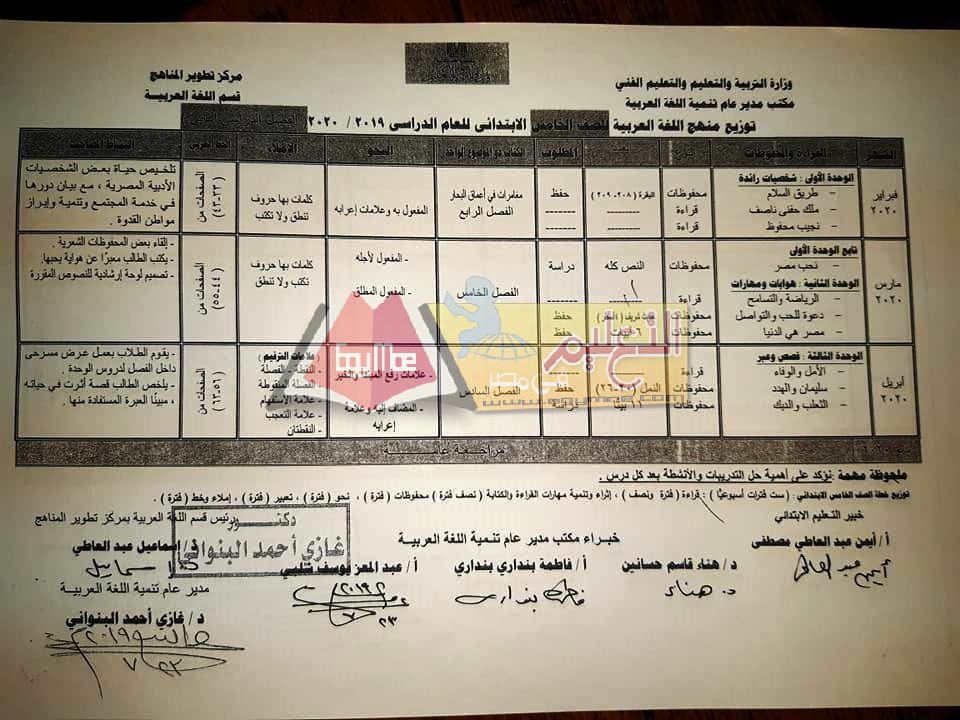 وزارة التربية والتعليم والتعليم الفني
مكتب مدير عام تنمية اللغة العربية
مركز تطوير المناهج
قسم اللغة العربية
توزيع منهج اللغة العربية للصف الخامس الابتدائى للعام الدراسى ٢٠١٩ / ٢٠٢٠
الشهر القراءة والمحفوظات فترة المطلوب الكتاب ذو الموضوع الواحد النحو الإملاء
فبراير ٢٠٢٠
الوحدة الأولى : شخصيات رائدة
– طريق السلام محفوظات البقرة (٢٠٨-٢٠٩) حفظ
– ملك حفنى ناصف قراءة
– نجيب محفوظ قراءة
مغامرات في أعماق البحار
الفصل الرابع
المفعول به وعلامات إعرابه
كلمات بها حروف
تنطق ولا تكتب
الصفحات من (٣٣-٤٣)
تلخيص حياة بعض الشخصيات
الأدبية المصرية ، مع بيان دورها
في خدمة المجتمع وتنمية وإبراز
مواطن القدوة .
مارس ٢٠٢٠
تابع الوحدة الأولى
– نحب مصر محفوظات النص كله دراسة
الوحدة الثانية : هوايات ومهارات
– الرياضة والتسامح قراءة
– دعوة للحب والتواصل محفوظات حفظ
– مصر هي الدنيا محفوظات ٦ أبيات حفظ
الفصل الخامس
- المفعول لأجله
- المفعول المطلق
كلمات بها حروف
تكتب ولا تنطق
الصفحات من (٤٤-٥٥)
- إلقاء بعض المحفوظات الشعرية .
- يكتب الطالب معبرًا عن هواية يحبها.
- تصميم لوحة إرشادية للنصوص المقررة
أبريل ٢٠٢٠
الوحدة الثالثة : قصص وعبر
– الأمل والوفاء قراءة
– سليمان والهدد محفوظات النمل (٢٠-٢٦) حفظ
– الثعلب والديك محفوظات ١١ بيتا دراسة
الفصل السادس
- علامات رفع المبتدأ والخبر
- المضاف إليه وعلامة
إعرابه
(علامات الترقيم)
- النقطة - الفصلة
- الفصلة المنقوطة
- علامة الاستفهام
- علامة التعجب
- النقطتان
الصفحات من (٥٦-٦٣)
- يقوم الطلاب بعمل عرض مسرحى
داخل الفصل لدروس الوحدة .
- يلخص الطالب قصة أثرت في حياته
، مبينًا العبرة المستفادة منها .
مراجعة عامة
ملحوظة مهمة :نؤكد على أهمية حل التدريبات والأنشطة بعد كل درس .
توزيع خطة الصف الخامس الابتدائي : ( ست فترات أسبوعيًّا ) : قراءة ( فترة ونصف ) ، إثراء وتنمية مهارات القراءة والكتابة ( نصف فترة ) محفوظات ( فترة ) ، نحو ( فترة ) ، تعبير ( فترة ) ، إملاء وخط ( فترة )
خبير التعليم الابتدائي
أ / أيمن عبد العاطي مصطفى
خبراء مكتب مدير عام تنمية اللغة العربية
د/ هناء قاسم حسانين
أ / فاطمة بنداري بنداري
أ / عبد المعز يوسف شلبي
رئيس قسم اللغة العربية بمركز تطوير المناهج
إسماعيل عبد العاطي
مدير عام تنمية اللغة العربية
د/ غازي أحمد البنواني
دكتور
غازي أحمد البنواني
د. هناء
التعليم
في مصر